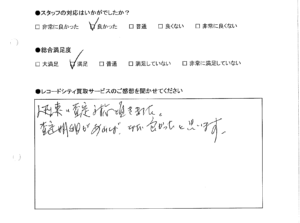 ●スタッフの対応はいかがでしたか？
□ 非常に良かった □ 良かった □ 普通 □ 良くない □ 非常に良くない
●総合満足度
□ 大満足 □ 満足 □ 普通 □ 満足していない □ 非常に満足していない
●レコードシティ買取サービスのご感想を聞かせてください
査定
査定明細があれば、 良かったと思います。